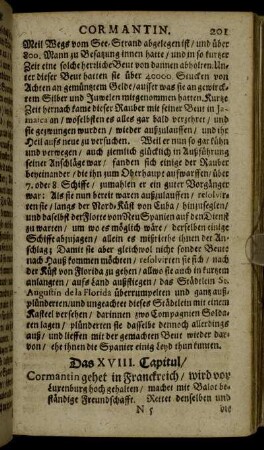 CORMANTIN. 201
Meil Wegs vom See-Strand abgelegen ist/ und über
800. Mann zu Besatzung innen hatte/ und in so kurtzer
Zeit eine solche herrliche Beut von dannen abholten. Un-
ter dieser Beut hatten sie über 40000 Stucken von
Achten an gemüntztem Gelde/ ausser was sie an gewirck-
tem Silber und Juwelen mit genommen hatten. Kurtze
Zeit hernach kame dieser Rauber mit seiner Beut in Ja-
maica an/ woselbsten es alles gar bald verzehret/ und
sie gezwungen wurden/ wieder aufzulauffen/ und ihr
Heil aufs neue zu versuchen. Weil er nun so gar kühn
und verwegen/ auch ziemlich glücklich in Ausführung
seiner Anschläge war/ fanden sich einige der Rauber
beyeinander/ die ihn zum Oberhaupt aufwarffen/ über
7. oder 8 Schiffe/ zumahlen er ein guter Vorgänger
war: Als sie nun bereit waren auszulauffen/ resolvirten
sie/ langs der Nord-Küst von Cuba/ hinzusegeln/
und daselbst der Flotte von Neu Spanien auf den Dienst
zu warten/ um wo es möglich wäre/ derselben einige
Schiffe abzujagen/ allein es mißriethe ihnen der An-
schlag; Damit sie aber gleichwol nicht sonder Beut
nach Hauß kommen möchten/ resolvirten sie sich/ nach
der Küst von Florida zu gehen/ allwo sie auch in kurtzem
anlangten/ aufs Land außstiegen/ das Städtlein St.
Augustin de la Florida überrumpelten und gantz auß-
plünderten/ und ungeachtet dieses Städtlein mit einem
Kasteel versehen/ darinnen zwo Compagnien Solda-
ten lagen/ plünderten sie dasselbe dennoch allerdings
auß/ und lieffen mit der gemachten Beut wieder dar-
von/ ehe ihnen die Spanier einig Leyd thun kunten.
Das XVIII. Capitul/
Cormantin gehet in Franckreich/ wird von
Luxenburg hoch gehalten/ machet mit Balot be-
ständige Freundschafft. Rettet denselben und
N 5 die